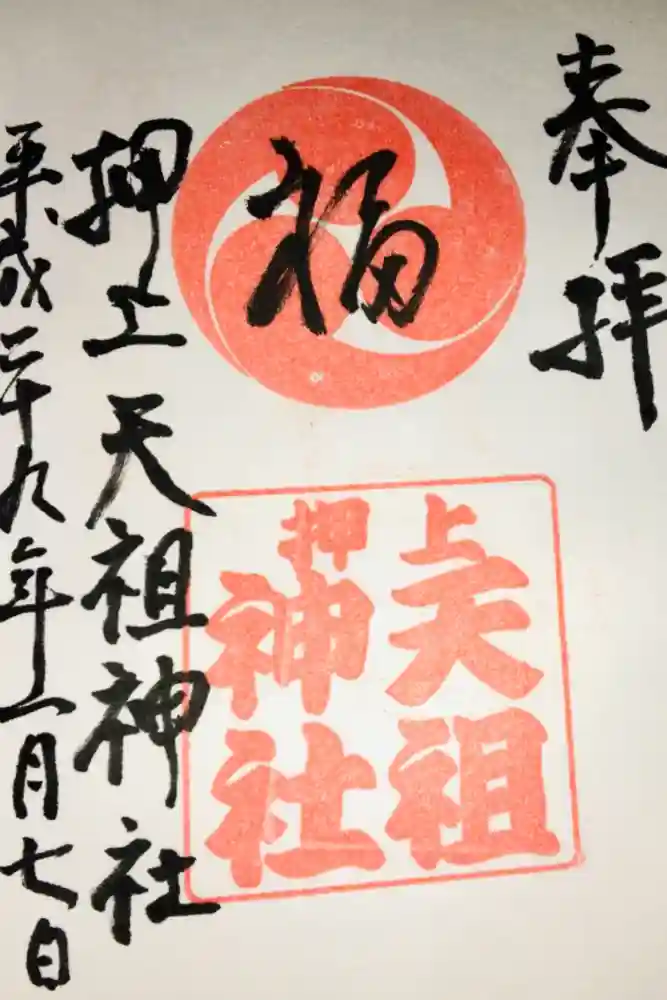 奉拝
福
押上
天祖
神社
押上天祖神社
平成二十九年一月七日